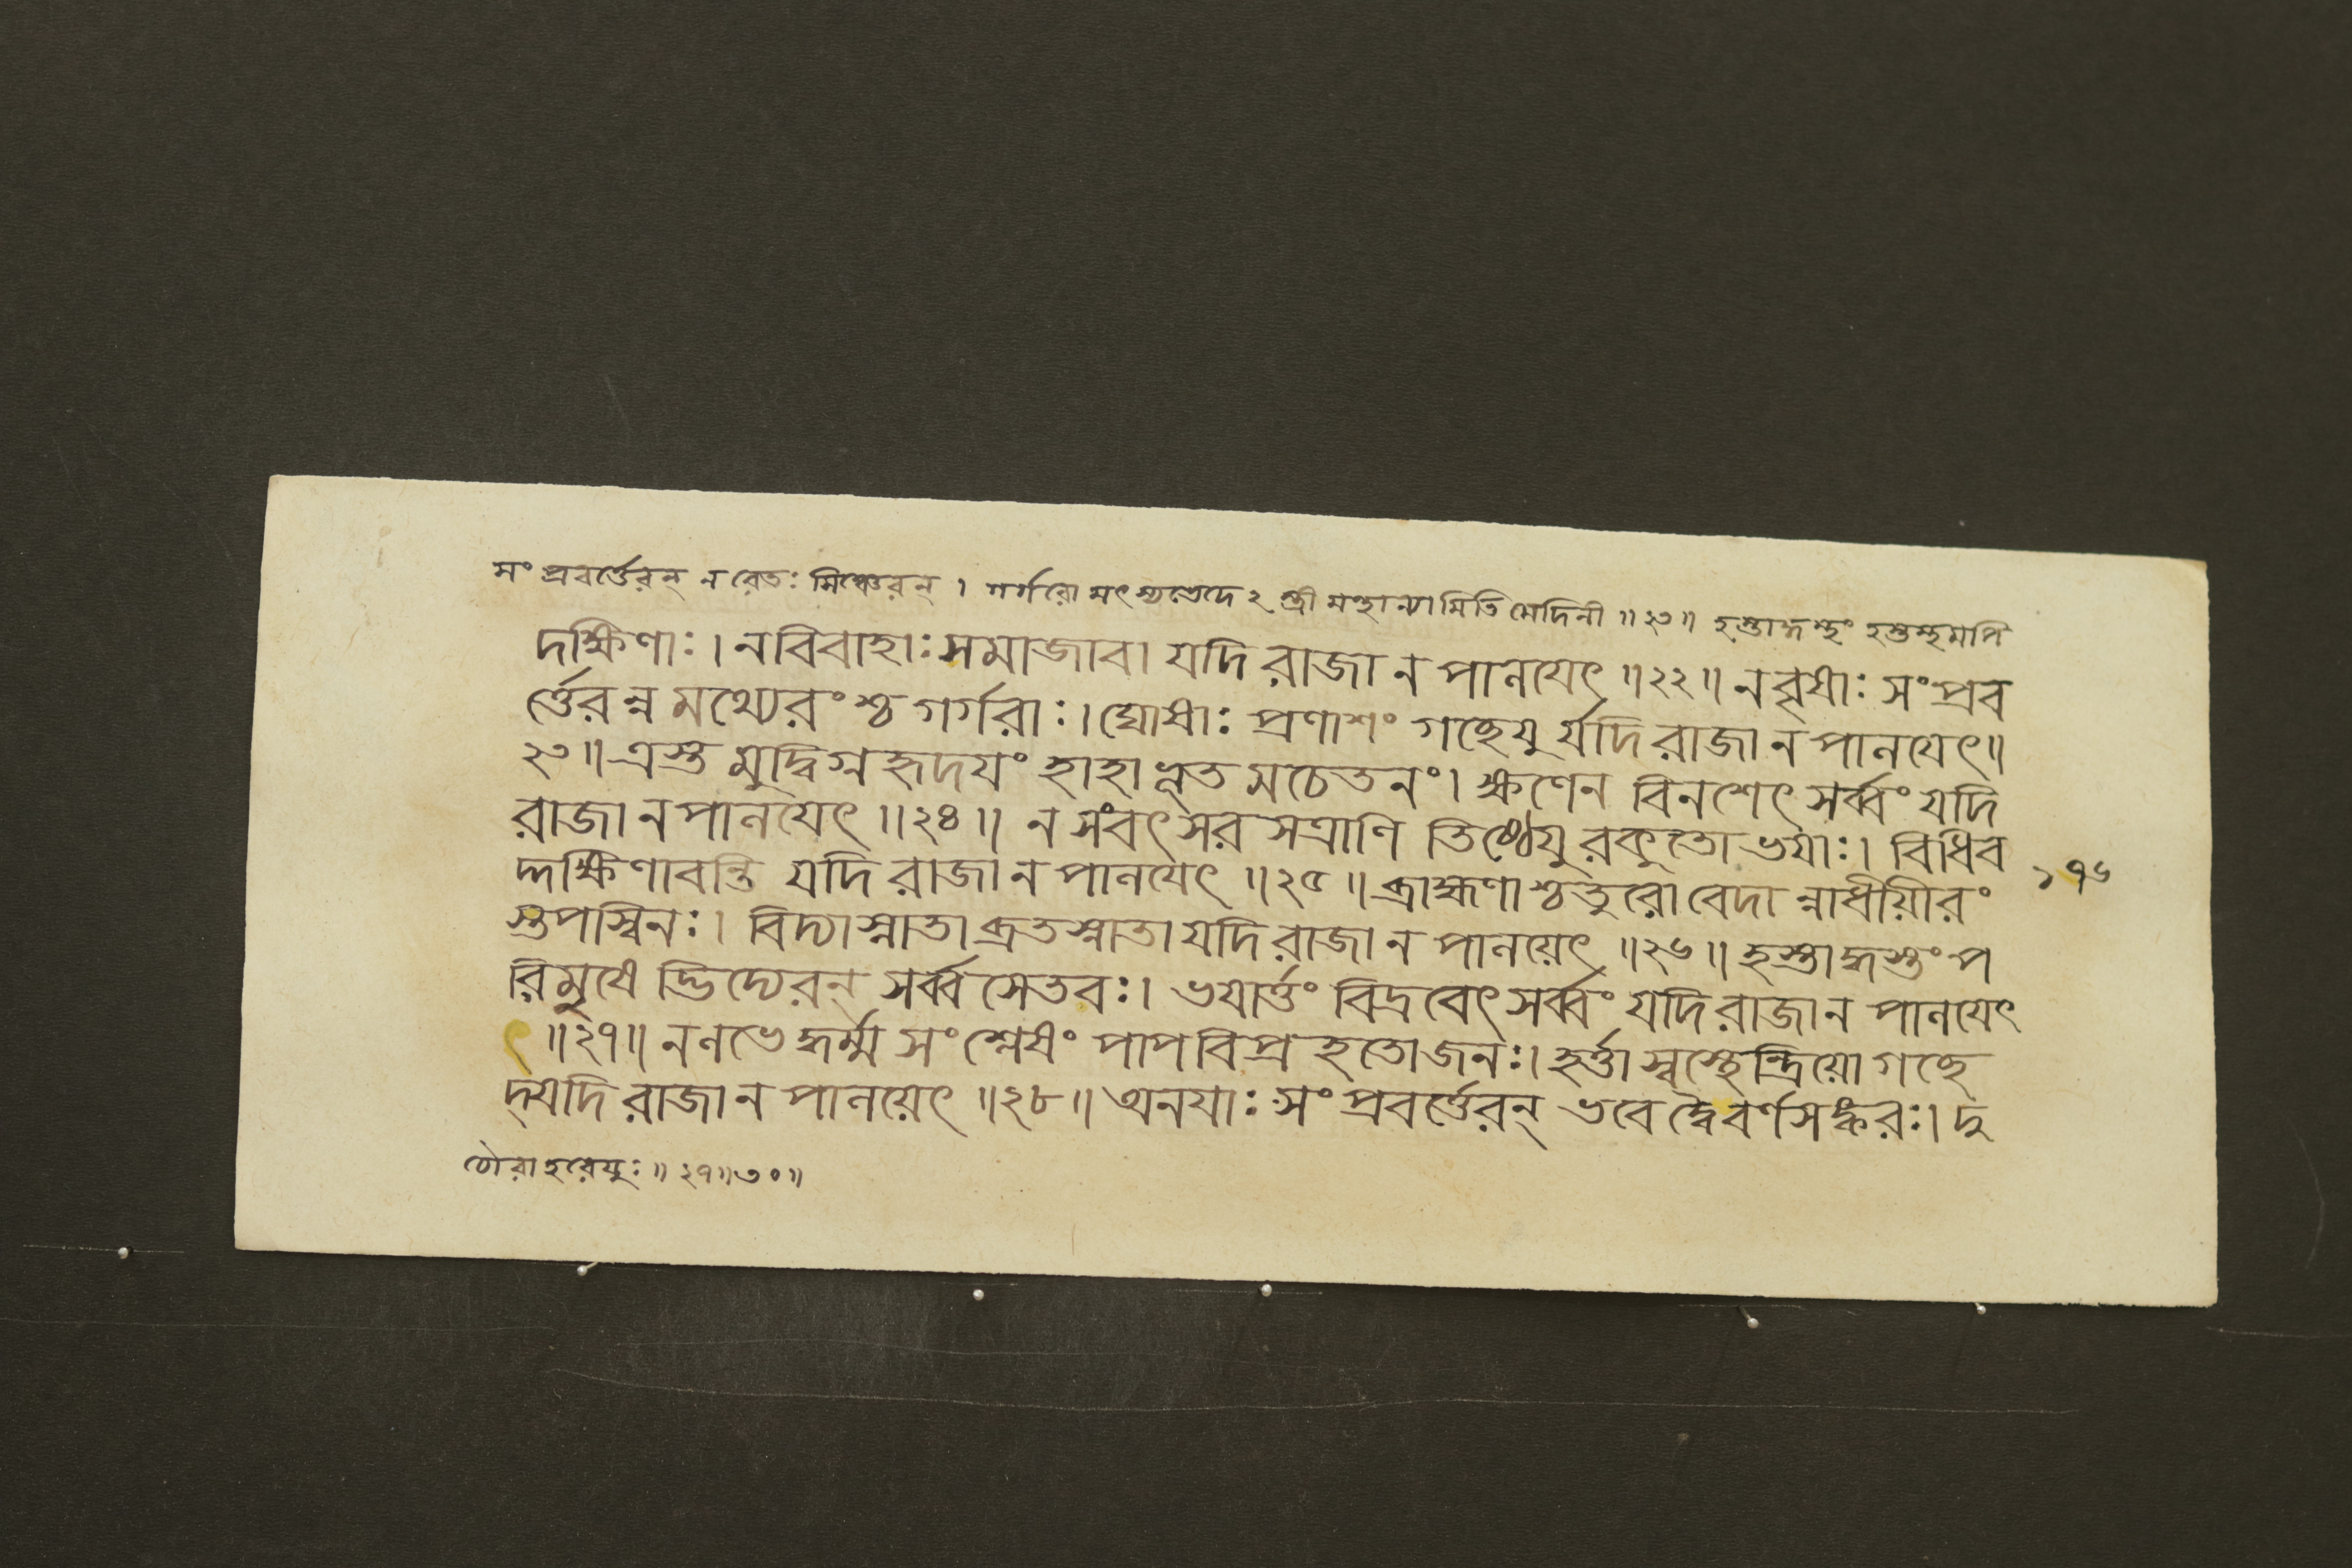 সংপ্রবর্ত্তেরন্ ন রেতঃ সিঞ্চেরন্ । গর্গরো মৎস্যভেদে ২ স্ত্রী মন্থান্যামিতি মেদিনী ॥২৩॥ হস্তাদ্ধস্তং হস্তস্থমপি
দক্ষিণাঃ । ন বিবাহাঃ সমাজাবা যদি রাজা ন পালযেৎ ॥২২॥ ন বৃষাঃ সংপ্রব
র্ত্তেরন্ন মথ্যেরংশ্চ গর্গরাঃ । ঘোষাঃ প্রণাশং গচ্ছেযুর্যদি রাজা ন পালযেৎ॥
২৩॥ ত্রস্তমুদ্বিগ্নহৃদযং হাহাভূতমচেতনং । ক্ষণেন বিনশেৎ সর্ব্বং যদি
রাজা ন পালযেৎ ॥২৪॥ ন সংবৎসরসত্রাণি তিষ্ঠেযুরকুতোভযাঃ । বিধিব
দ্দক্ষিণাবন্তি যদি রাজা ন পালযেৎ ॥২৫॥ ব্রাহ্মণাশ্চতুরো বেদান্নাধীয়ীরং
১৭৬
স্তপস্বিনঃ । বিদ্যাস্নাতা ব্রতস্নাতা যদি রাজা ন পালয়েৎ ॥২৬॥ হস্তাদ্ধস্তং প
রিমুষে দ্ভিদ্যেরন্ সর্ব্বসেতবঃ । ভযার্ত্তং বিদ্রবেৎ সর্ব্বং যদি রাজা ন পালযেৎ
॥২৭॥ ন লভেদ্ধর্ম্মসংশ্লেষং পাপবিপ্রহতো জনঃ । হর্ত্তা স্বস্থেন্দ্রিয়ো গচ্ছে
দ্যদি রাজা ন পালয়েৎ ॥২৮॥ অনযাঃ সংপ্রবর্ত্তেরন্ ভবেদ্বৈ বর্ণসঙ্করঃ । দু
চৌরা হরেযুঃ ॥২৭॥৩০॥